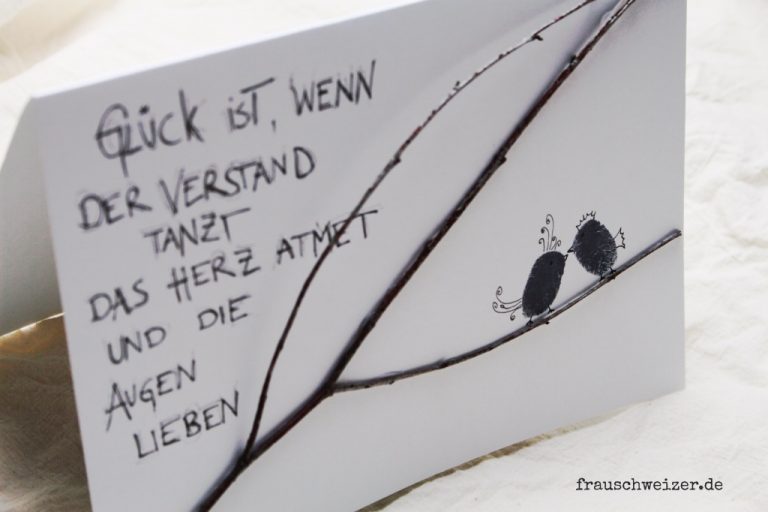 Glück ist, wenn
der Verstand
tanzt
das Herz atmet
und die
Augen
lieben
frauschweizer.de